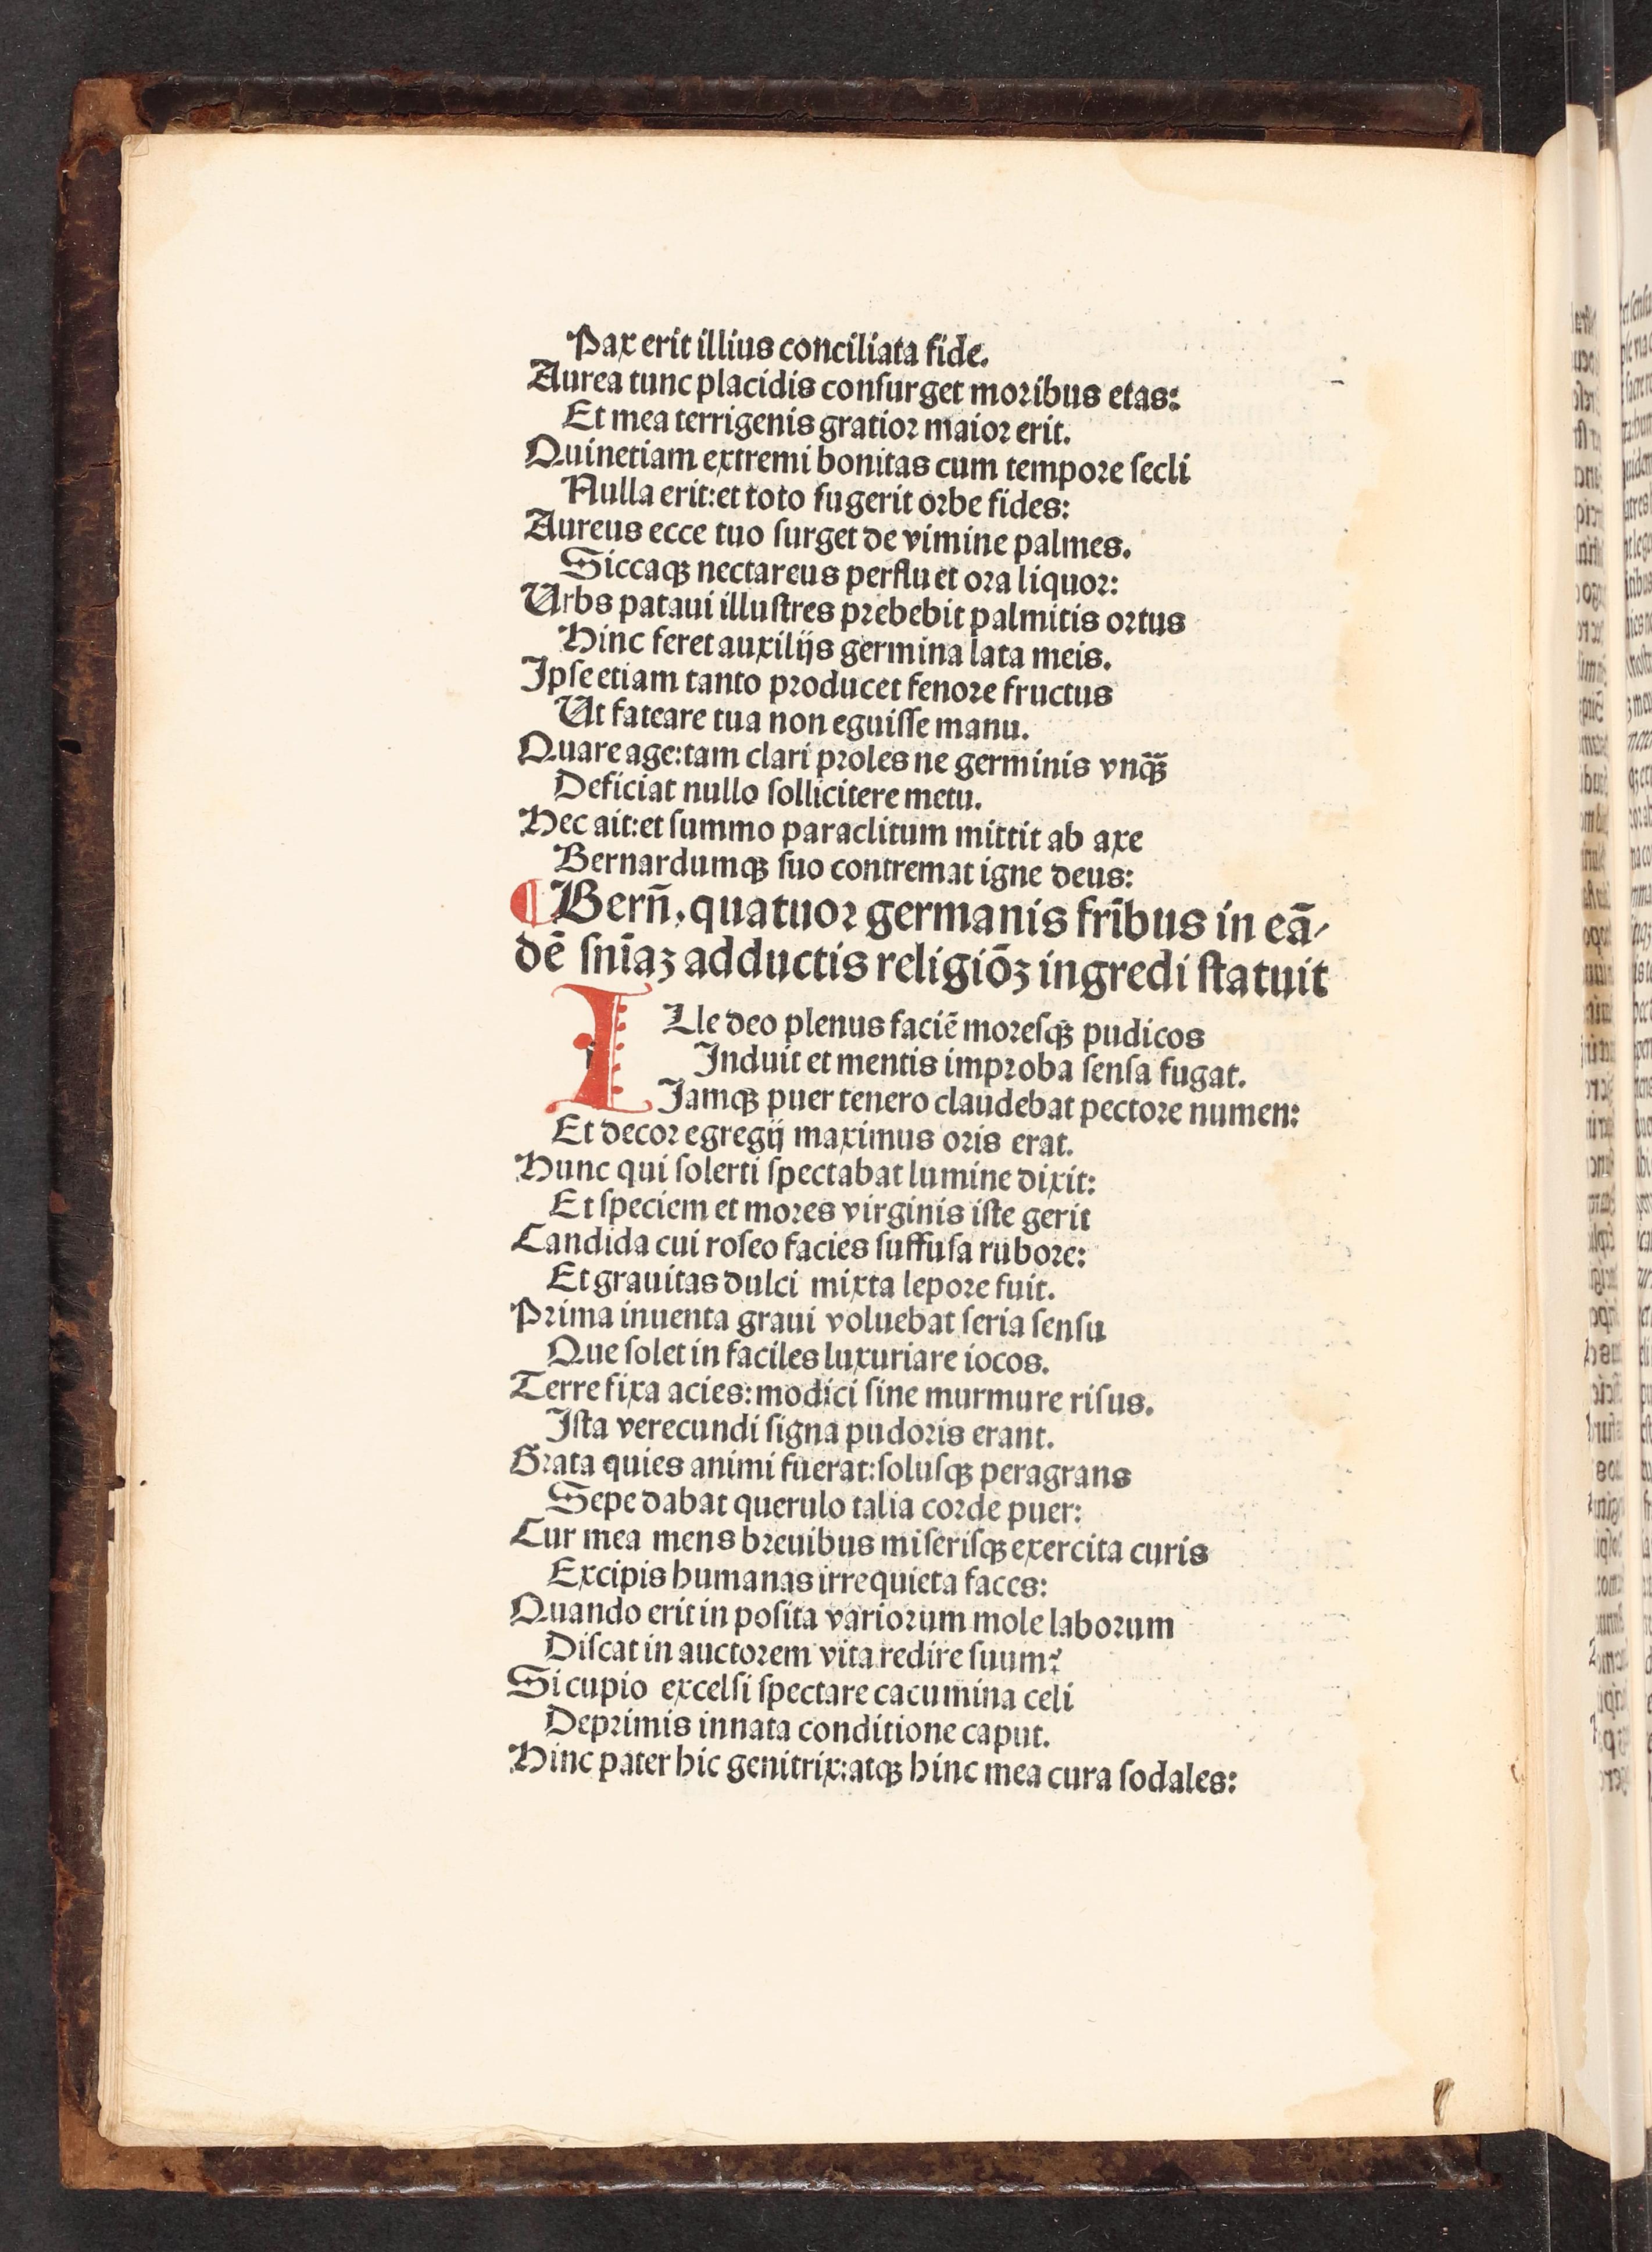 Pax erit illius conciliata fide.
Aurea tunc placidis conſurget moꝛibus etas:
Et mea terrigenis gratioꝛ maioꝛ erit.
Quinetiam extremi bonitas cum tempoꝛe ſecli
Nulla erit:et toto fugerit oꝛbe fides:
Aureus ecce tuo ſurget de vimine palmes.
Siccaqꝫ nectareus perfluet oꝛa liquoꝛ:
Urbs pataui illuſtres pꝛebebit palmitis oꝛtus
Hinc feret auxilijs germina lata meis.
Ipſe etiam tanto pꝛoducet fenoꝛe fructus
Ut fateare tua non eguiſſe manu.
Quare age:tam clari pꝛoles ne germinis vnqꝫ̃
Deficiat nullo ſollicitere metu.
Hec ait:et ſummo paraclitum mittit ab axe
Bernardumqꝫ ſuo contremat igne deus:
¶ Bern̄. quatuoꝛ germanis fr̄ibus in eā-
dē ſn̄iaꝫ adductis religiōꝫ ingredi ſtatuit
I Lle deo plenus faciē moꝛeſqꝫ pudicos
Induit et mentis impꝛoba ſenſa fugat.
Jamqꝫ puer tenero claudebat pectoꝛe numen:
Et decoꝛ egregij maximus oꝛis erat.
Hunc qui ſolerti ſpectabat lumine dixit:
Et ſpeciem et moꝛes virginis iſte gerit
Candida cui roſeo facies ſuffuſa ruboꝛe:
Et grauitas dulci mixta lepoꝛe fuit.
Pꝛima inuenta graui voluebat ſeria ſenſu
Que ſolet in faciles luxuriare iocos.
Terre fixa acies:modici ſine murmure riſus.
Iſta verecundi ſigna pudoꝛis erant.
Gꝛata quies animi fuerat:ſoluſqꝫ peragrans
Sepe dabat querulo talia coꝛde puer:
Cur mea mens bꝛeuibus miſeriſqꝫ exercita curis
Excipis humanas irrequieta faces:
Quando erit in poſita varioꝛum mole laboꝛum
Diſcat in auctoꝛem vita redire ſuum?
Si cupio excelſi ſpectare cacumina celi
Depꝛimis innata conditione caput.
Hinc pater hic genitrix:atqꝫ hinc mea cura ſodales: